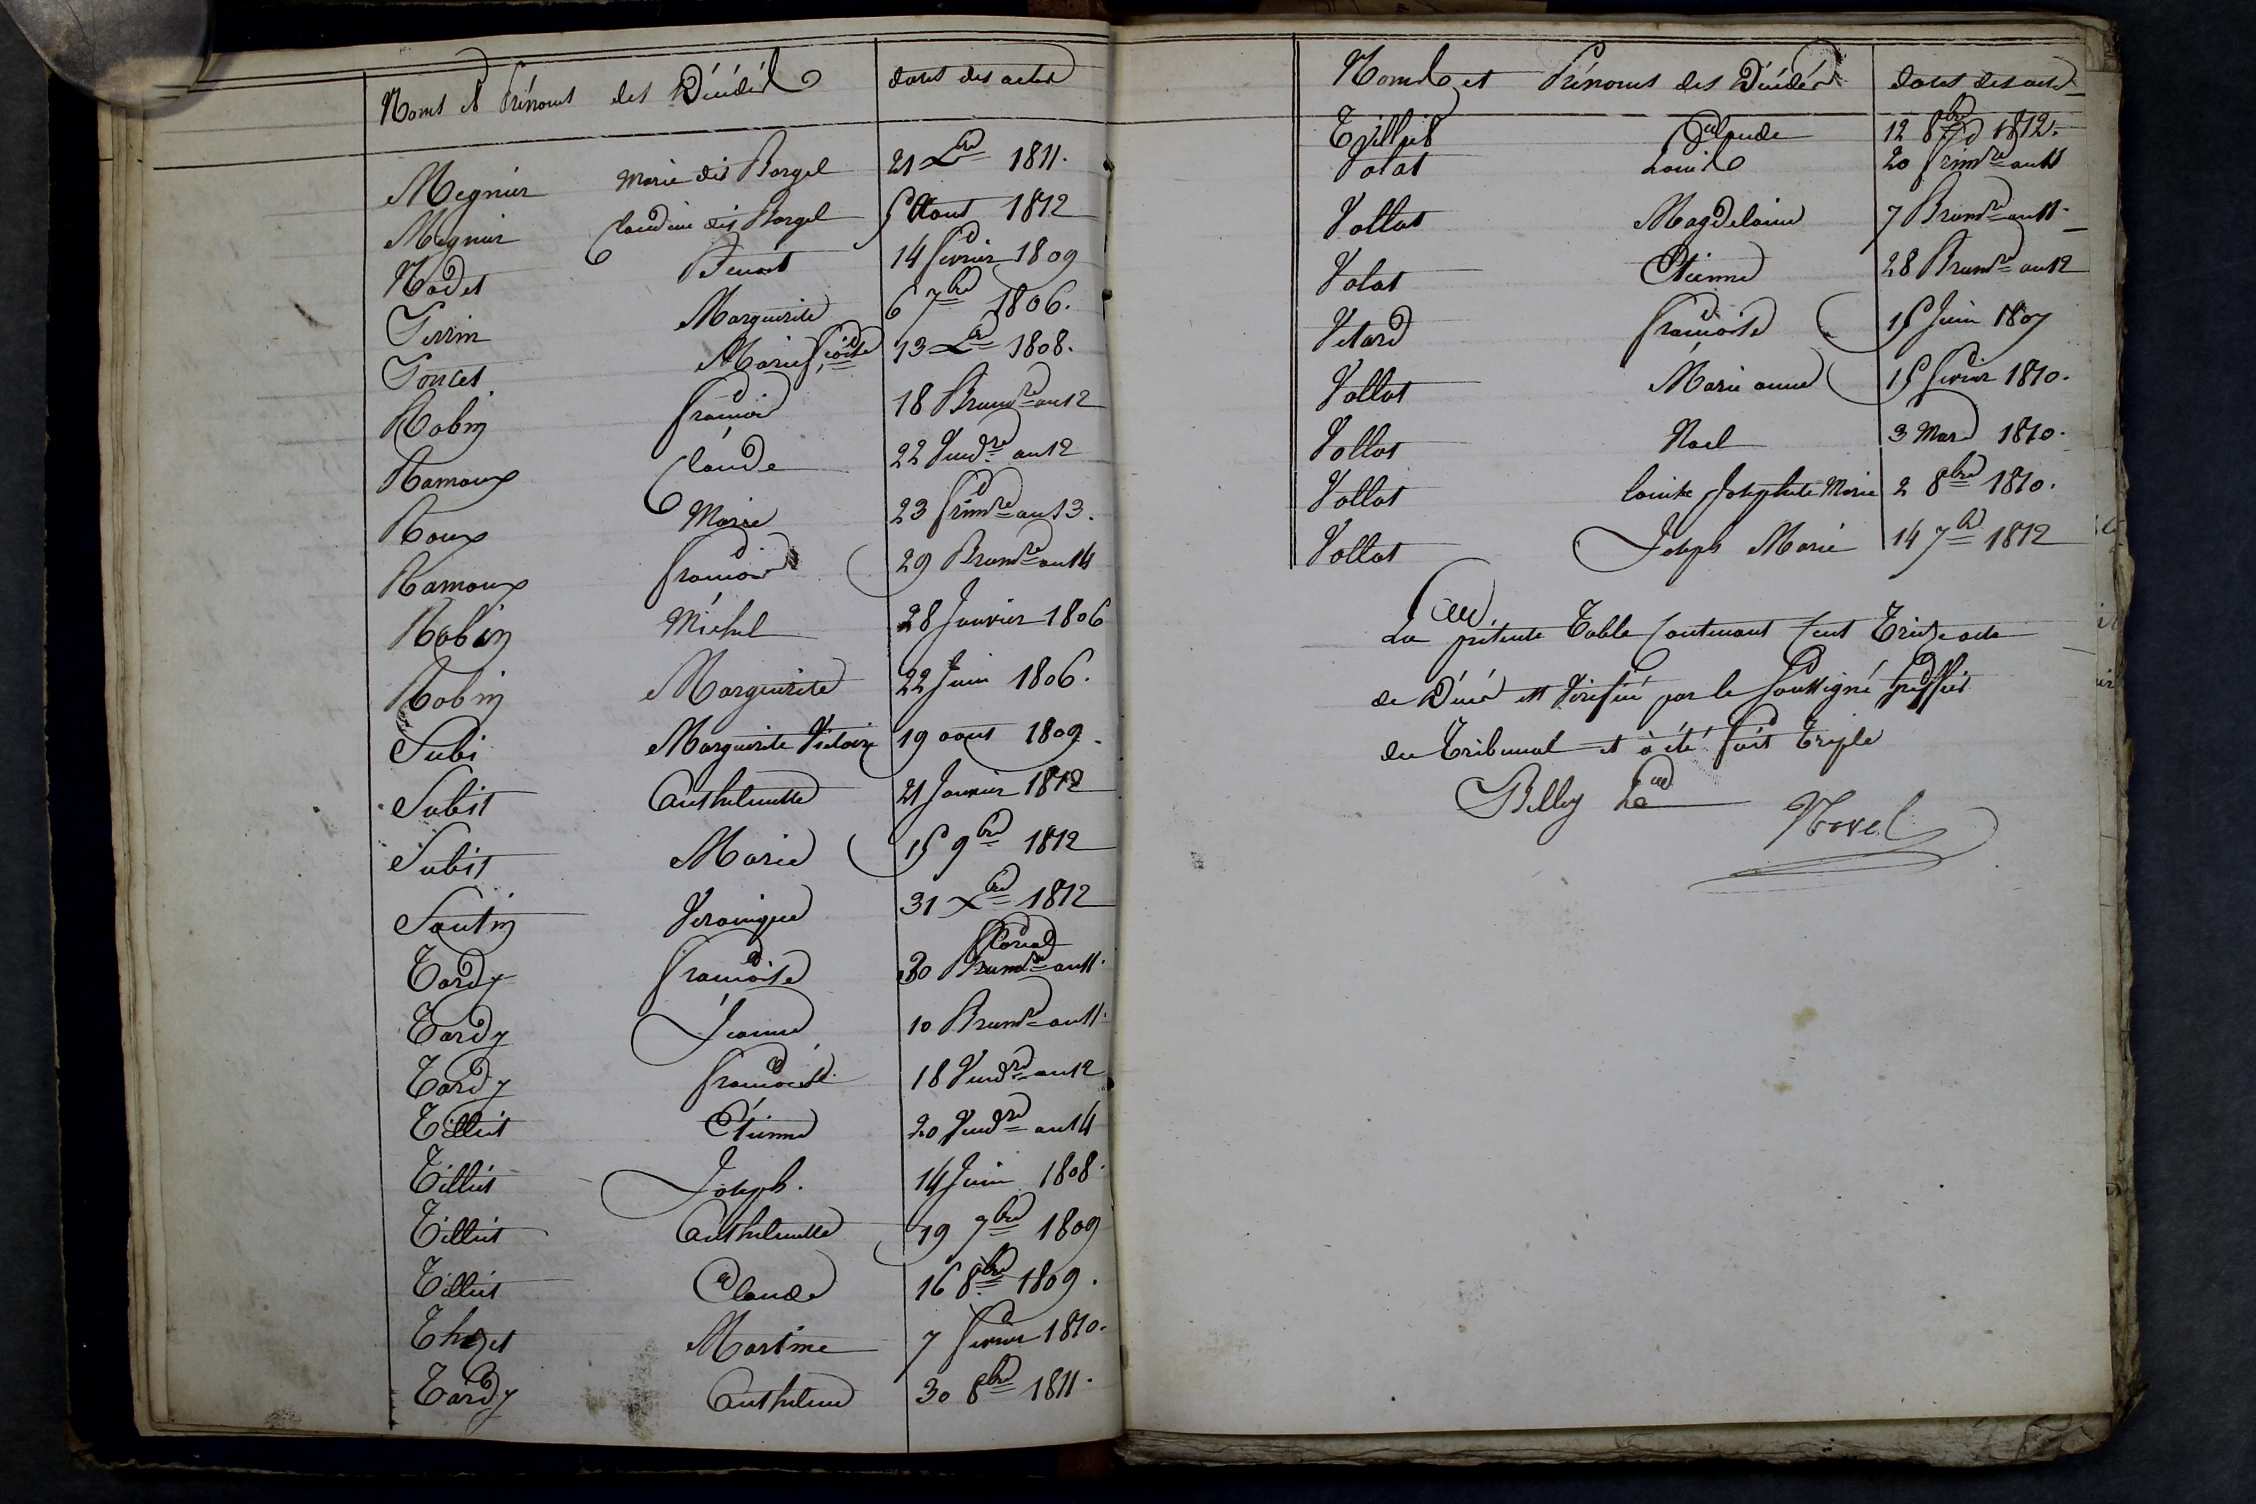 Noms et Prénoms des Décédés dates des actes
Megnier Marie dit Borgel 21 Xbre 1811.
Megnier Claudine dit Borgel 5 Aout 1812
Nodet Benoit 14 fevrier 1809
Perrin Marguerite 6 7bre 1806.
Poncet Marie fçoise 13 Xbre 1808.
Robin françois 18 Brumre an 12
Ramoux Claude 22 Vendre an 12
Roux Marie 23 frimre an 13.
Ramoux françois 29 Brumre an 14
Robin Michel 28 Janvier 1806
Robin Marguerite 22 Juin 1806.
Subi Marguerite Victoire 19 aout 1809.
Subit Anthelmette 21 Janvier 1812
Subit Marie 15 9bre 1812
Santin Veronique 31 Xbre 1812
floréal
Tardy françoise 30 Brumre an 11.
Tardy Jeanne 10 Brumre an 11.
Tardy françoise 18 Vendre an 12
Tilliet Etienne 20 Vendre an 14
Tilliet Joseph. 14 Juin 1808.
Tilliet Anthelmette 19 7bre 1809
Tilliet Claude 16 8bre 1809.
Thozet Martine 7 fevrier 1810.
Tardy Anthelme 30 8bre 1811.
Noms et Prénoms des Décédés dates des actes
Tilliet Claude 12 8bre 1812.
Volat Louis 20 frimre an 11
Vollat Magdelaine 7 Brumre an 11.
Volat Etienne 28 Brumre an 12
Vetard françoise 15 Juin 1807
Vollat Marie anne 15 fevrier 1810.
Vollat Noel 3 Mars 1810.
Vollat Louise Josephete Marie 2 8bre 1810.
Vollat Joseph Marie 14 7bre 1812
La présente Table Contenant Cent Treize acte
de Décés est Vérifiée par le Soussigné greffier
du Tribunal et à été fait Triple
Belley Le
Novel